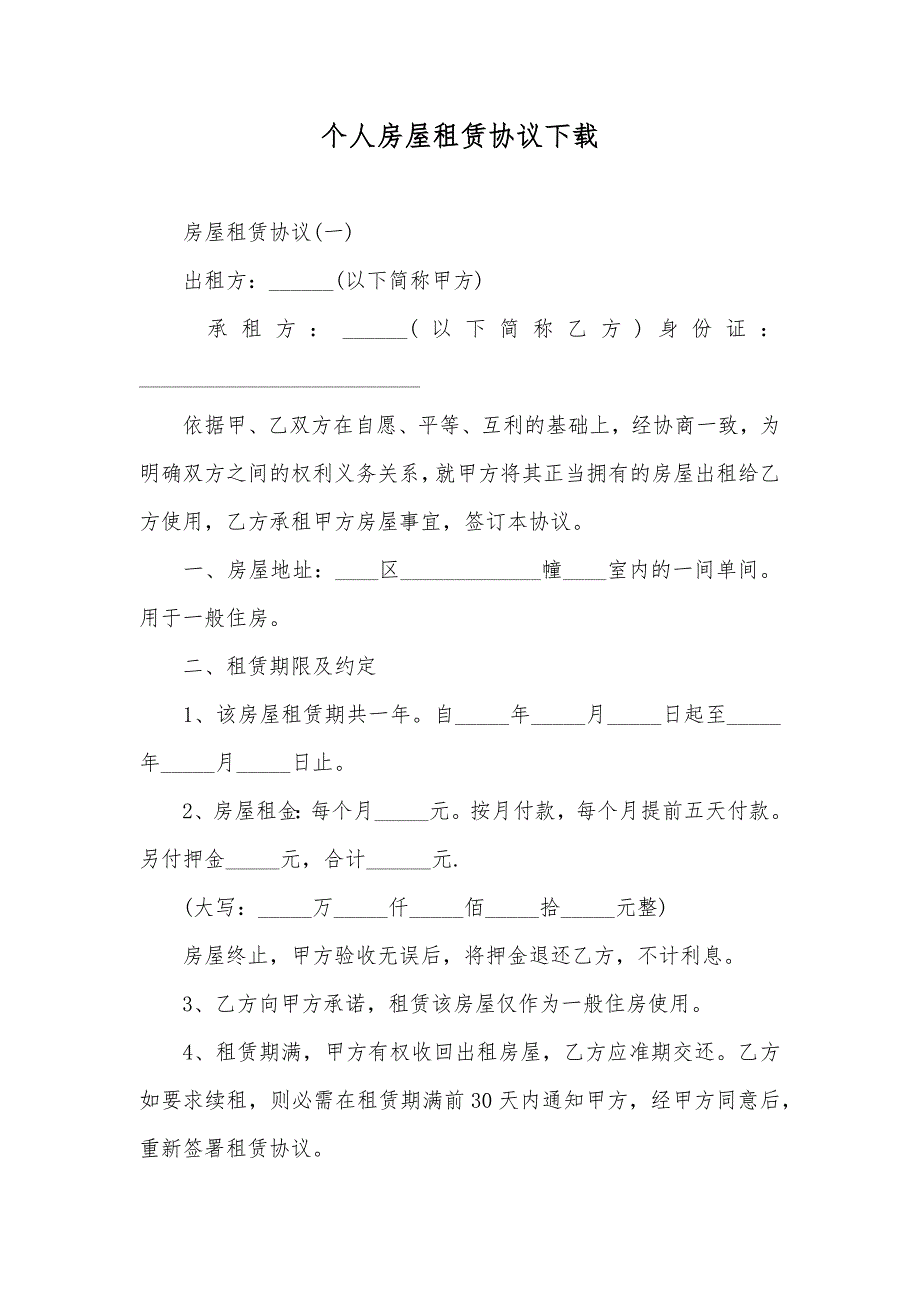 个人房屋租赁协议下载
房屋租赁协议(一)
出租方：______(以下简称甲方)
承租方：______(以下简称乙方)身份证：
__________________________
依据甲、乙双方在自愿、平等、互利的基础上，经协商一致，为
明确双方之间的权利义务关系，就甲方将其正当拥有的房屋出租给乙
方使用，乙方承租甲方房屋事宜，签订本协议。
一、房屋地址：____区_____________幢____室内的一间单间。
用于一般住房。
二、租赁期限及约定
1、该房屋租赁期共一年。自_____年_____月_____日起至_____
年_____月_____日止。
2、房屋租金：每个月_____元。按月付款，每个月提前五天付款。
另付押金_____元，合计______元.
(大写：_____万_____仟_____佰_____拾_____元整)
房屋终止，甲方验收无误后，将押金退还乙方，不计利息。
3、乙方向甲方承诺，租赁该房屋仅作为一般住房使用。
4、租赁期满，甲方有权收回出租房屋，乙方应准期交还。乙方
如要求续租，则必需在租赁期满前30天内通知甲方，经甲方同意后，
重新签署租赁协议。